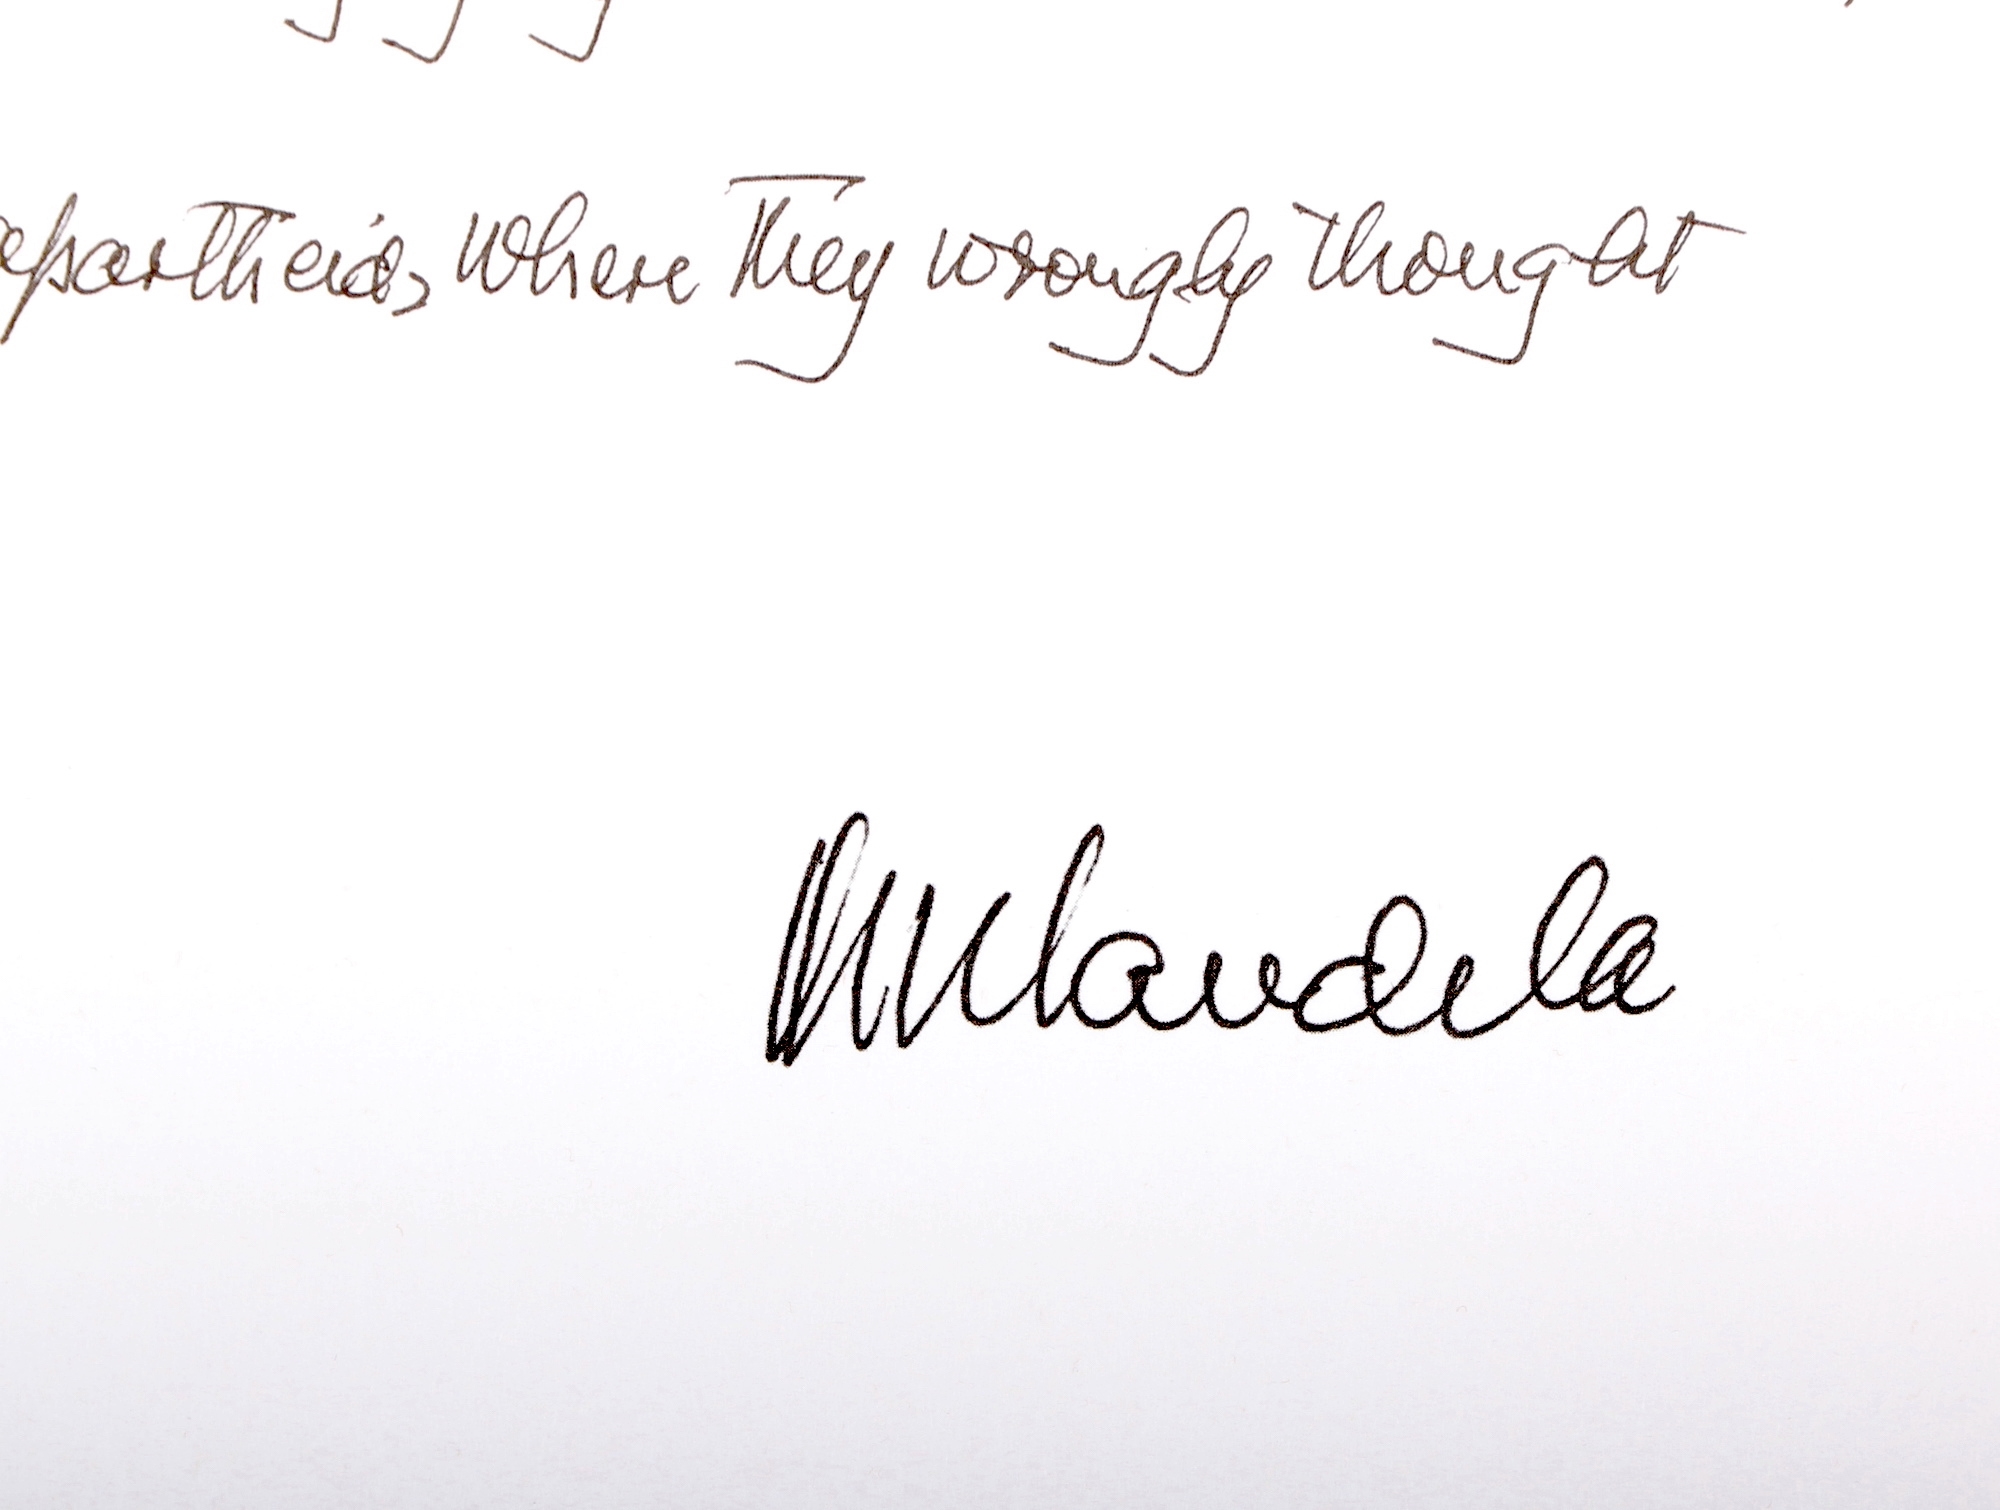 apartheid, where They wrongly thought
NMandela